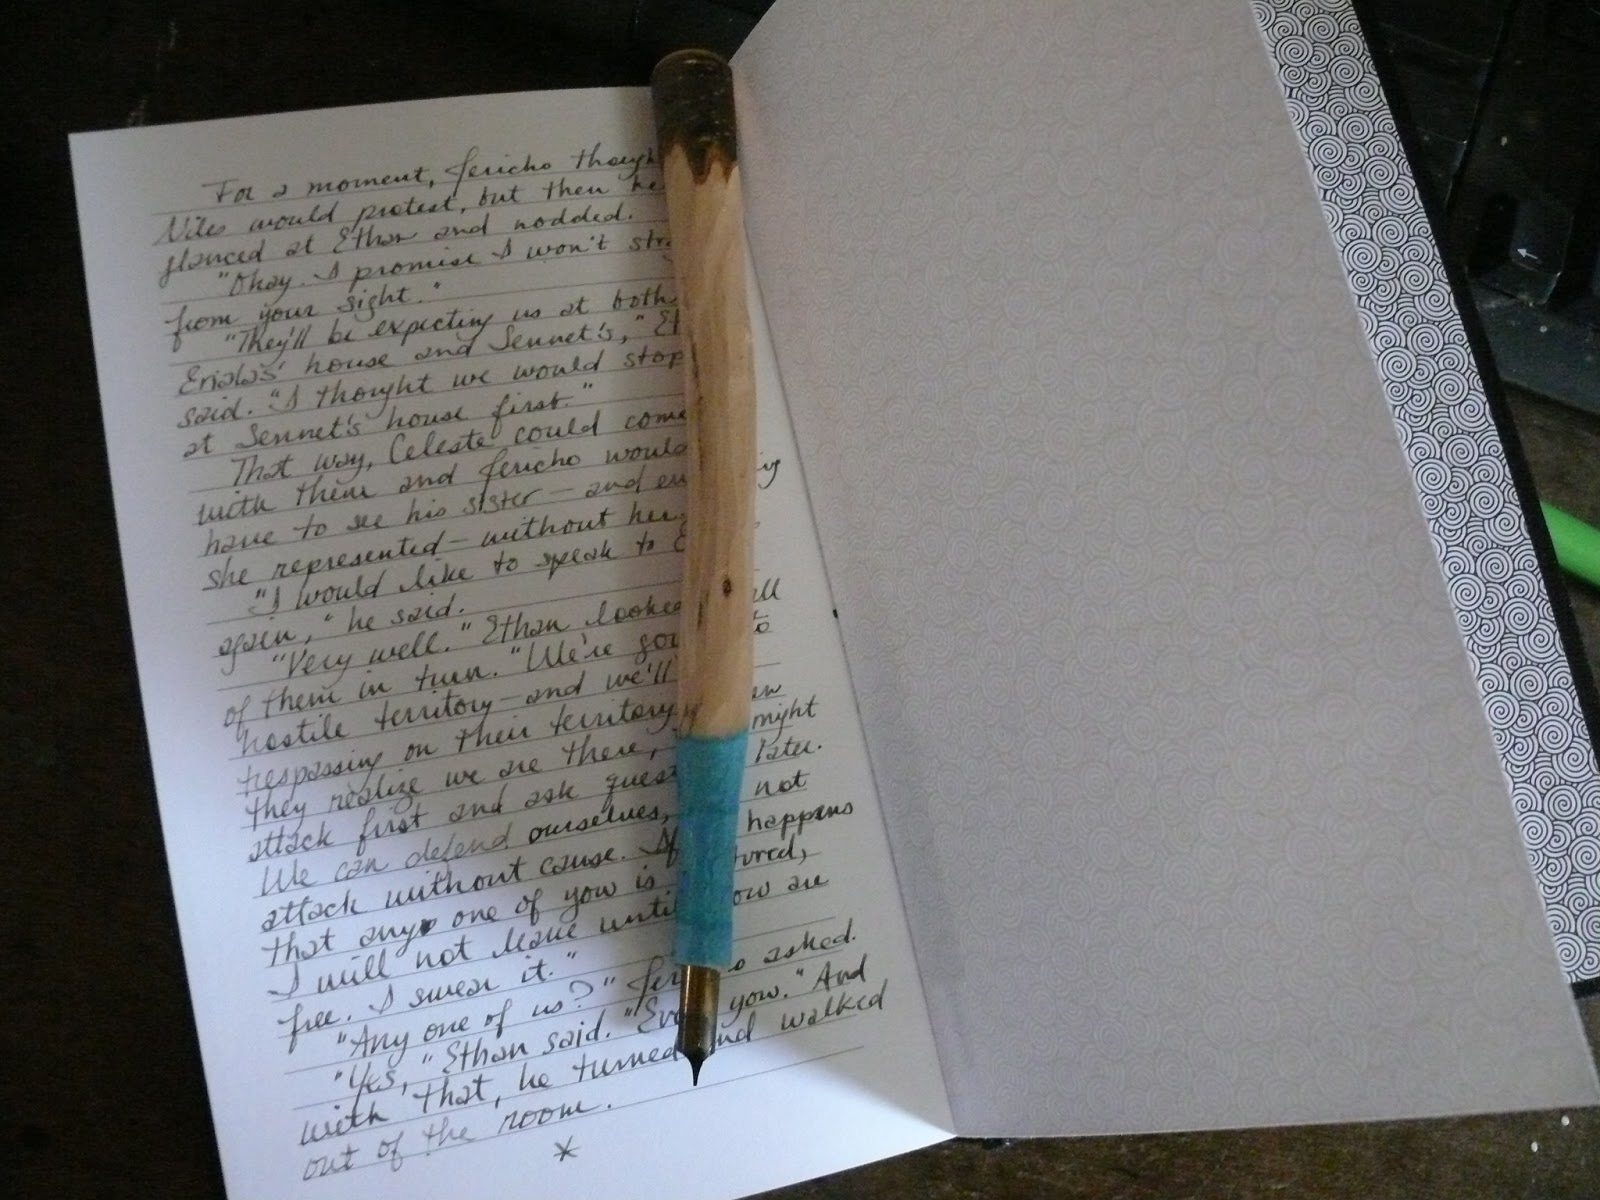 For a moment, Jericho though
Niles would protest, but then he
glanced at Ethan and nodded.
"Okay. I promise I won't str
from your sight."
"They'll be expecting us at both
house and Sennet's," Et
said. "I thought we would stop
at Sennet's house first."
That way, Celeste could come
with them and Jericho would
have to see his sister — and ing
she represented — without her.
"I would like to speak to
again," he said.
"Very well." Ethan looked all
of them in turn. "We're go to
hostile territory — and we'll
trespassing on their territory
they realize we are there, might
attack first and ask quest later.
We can defend ourselves, not
attack without cause. If happens
that any one of you is tured,
I will not leave until you are
free. I swear it."
"Any one of us?" Jericho asked.
"Yes," Ethan said. "Even you." And
with that, he turned and walked
out of the room.
*